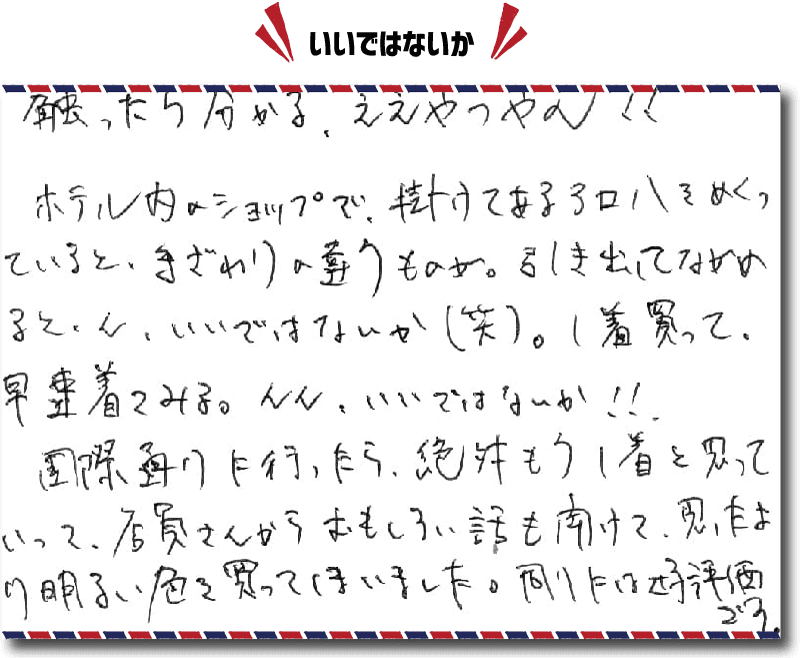 いいではないか
触ったら分かる、ええやつやん!!
ホテル内のショップで、掛けてあるアロハをめくっ
ていると、手ざわりの違うものが。引き出してながめ
ると、ん、いいではないか(笑)。1着買って、
早速着てみる。んん、いいではないか!!
国際通りに行ったら、絶対もう1着と思って
いって、店員さんからおもしろい話も聞けて、思ったよ
り明るい色を買ってしまいました。周りには好評価
です。